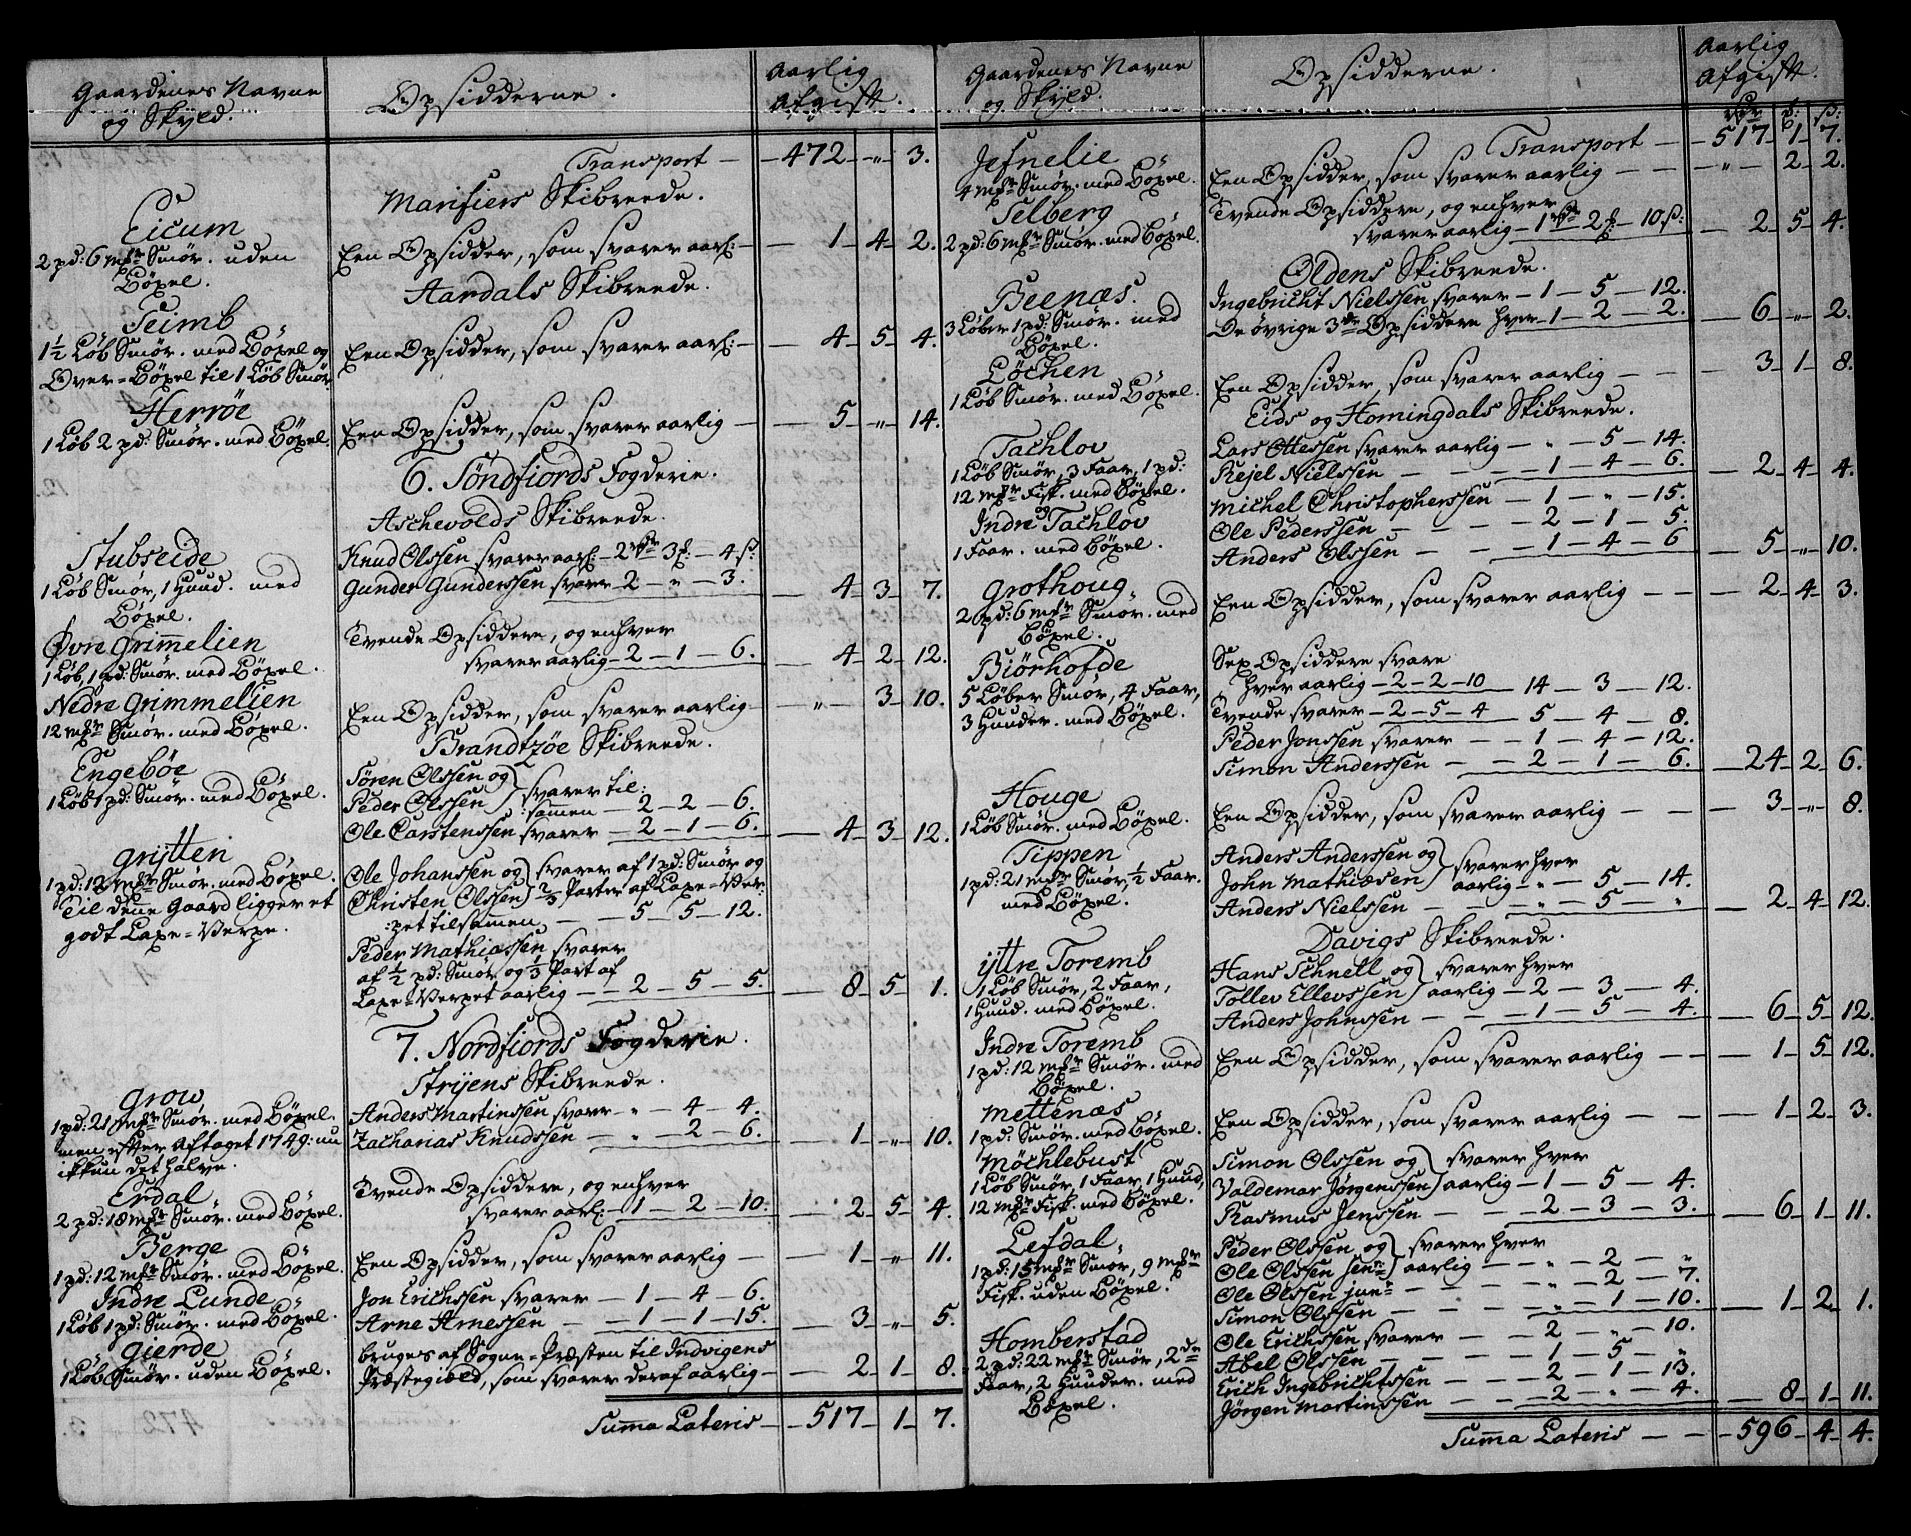 Gaardenes Navne
og Skyld.
Opsidderne.
Aarlig
Afgift.
Transport — 472 — " — 3.
Marifiers Skibreede.
Eicum
2 pd: 6 mkr Smør. uden
Bøxel.
Een Opsidder, som svarer aarl: — 1 — 4 — 2.
Aardals Skibreede.
Seimb
1½ Løb Smør. med Bøxel og
Over=Bøxel til 1 Løb Smør
Een Opsidder, som svarer aarl: — 4 — 5 — 4.
Herrøe
1 Løb 2 pd: Smør. med Bøxel.
Een Opsidder, som svarer aarlig — 5 — " — 14.
6. Søndfiords Fogderie.
Aschevolds Skibreede.
Stubseide
1 Løb Smør, 1 Huud. med
Bøxel.
Knud Olssen svarer aarl: — 2 rdr 3 ₰: — 4 s:
Gunder Gunderssen svarer 2 — " — 3. — 4 — 3 — 7.
Øvre Grimmelien
1 Løb, 1 pd: Smør. med Bøxel.
Tvende Opsiddere, og enhver
svarer aarlig — 2 — 1 — 6. — 4 — 2 — 12.
Nedre Grimmelien
12 mkr Smør. med Bøxel.
Een Opsidder, som svarer aarlig — " — 3 — 10.
Brandtzøe Skibreede.
Engebøe
1 Løb 1 pd: Smør. med Bøxel.
Søren Olssen og
Peder Olssen } svarer til:
:samen — 2 — 2 — 6.
Ole Carstenssen svarer — 2 — 1 — 6. — 4 — 3 — 12.
Grytten
1 pd: 12 mkr Smør. med Bøxel.
Til denne Gaard ligger et
godt Laxe=Verpe.
Ole Johanssen og } svarer af 1 pd: Smør og
Christen Olssen } ⅔ Parter af Laxe=Ver:
:pet tilsamen — 5 — 5 — 12.
Peder Mathiassen svarer
af ½ pd: Smør og ⅓ Part af
Laxe=Verpet aarlig — 2 — 5 — 5. — 8 — 5 — 1.
7. Nordfiords Fogderie.
Stryens Skibreede.
Grow
1 pd: 21 mkr Smør. med Bøxel.
men efter Aftaget 1749: nu
ikkun det halve.
Anders Martinssen svarer — " — 4 — 4.
Zacharias Knudssen — " — 2 — 6. — 1 — " — 10.
Erdal
2 pd: 18 mkr Smør. med Bøxel.
Tvende Opsiddere, og enhver
svarer aarl: — 1 — 2 — 10. — 2 — 5 — 4.
Berge
1 pd: 12 mkr Smør. med Bøxel.
Een Opsidder, som svarer aarlig — 1 — " — 11.
Indre Lunde
1 Løb 1 pd: Smør. med Bøxel.
Jon Erichssen svarer — 1 — 4 — 6.
Arne Arnessen — 1 — 1 — 15. — 3 — " — 5.
Gierde
1 Løb Smør. uden Bøxel.
bruges af Sogne=Præsten til Indvigens
Præstegield, som svarer deraf aarlig — 2 — 1 — 8.
Summa Lateris — 517 — 1 — 7.
Gaardenes Navne
og Skyld.
Opsidderne.
Aarlig
Afgift.
rdr ₰: s:
Transport — 517 — 1 — 7.
Jefnelie
4 mkr Smør. med Bøxel.
Een Opsidder, som svarer aarlig — " — 2 — 2.
Selberg
2 pd: 6 mkr Smør. med Bøxel.
Tvende Opsiddere, og enhver
svarer aarlig — 1 rdr 2 ₰ — 10 s: — 2 — 5 — 4.
Oldens Skibreede.
Beenæs.
3 Løber 1 pd: Smør. med
Bøxel.
Ingebricht Nielssen svarer — 1 — 5 — 12.
De øvrige 3de Opsiddere hver — 1 — 2 — 2. — 6 — " — 2.
Løchen
1 Løb Smør. med Bøxel.
Een Opsidder, som svarer aarlig — 3 — 1 — 8.
Eids og Homingdals Skibreede.
Tachlov
1 Løb Smør, 3 Faar, 1 pd:
12 mkr Fisk. med Bøxel.
Lars Ottessen svarer aarlig — " — 5 — 14.
Kejel Nielssen — 1 — 4 — 6. — 2 — 4 — 4.
Indre Tachlov
1 Faar. med Bøxel.
Michel Christopherssen — 1 — " — 15.
Ole Pederssen — 2 — 1 — 5.
Anders Olssen — 1 — 4 — 6 — 5 — " — 10.
Grothoug
2 pd: 6 mkr Smør. med
Bøxel.
Een Opsidder, som svarer aarlig — 2 — 4 — 3.
Biørhofde
5 Løber Smør, 4 Faar,
3 Huuder. med Bøxel.
Sex Opsiddere svare
hver aarlig — 2 — 2 — 10 — 14 — 3 — 12.
Tvende svarer — 2 — 5 — 4 — 5 — 4 — 8.
Peder Jonssen svarer — 1 — 4 — 12.
Simon Anderssen — 2 — 1 — 6. — 24 — 2 — 6.
Houge
1 Løb Smør. med Bøxel.
Een Opsidder, som svarer aarlig — 3 — " — 8.
Tippen
1 pd: 21 mkr Smør, ½ Faar.
med Bøxel.
Anders Anderssen og
John Mathiæsen } svarer hver
aarlig — " — 5 — 14.
Anders Nielssen — " — 5 — " — 2 — 4 — 12.
Davigs Skibreede.
Yttre Toremb
1 Løb Smør, 2 Faar,
1 Huud. med Bøxel.
Hans Schnell og } svarer hver
Tollev Ellevssen } aarlig — 2 — 3 — 4.
Anders Johnssen — 1 — 5 — 4. — 6 — 5 — 12.
Indre Toremb
1 pd: 12 mkr Smør. med
Bøxel.
Een Opsidder, som svarer aarlig — 1 — 5 — 12.
Mettenæs
1 pd: Smør. med Bøxel.
Een Opsidder, som svarer aarlig — 1 — 2 — 3.
Møchlebust
1 Løb Smør, 1 Faar, 1 Huud,
12 mkr Fisk. med Bøxel.
Simon Olssen og } svarer hver
Valdemar Jørgenssen } aarlig — 1 — 5 — 4.
Rasmus Jenssen — 2 — 3 — 3. — 6 — 1 — 11.
Lefdal
1 pd: 15 mkr Smør, 9 mkr
Fisk. uden Bøxel.
Peder Olssen og } svarer hver
Ole Olssen sen: } aarlig — " — 2 — "
Ole Olssen jun: — " — 2 — 7.
Simon Olssen — " — 1 — 10. — 1 — 2 — 1.
Homberstad
2 pd: 22 mkr Smør, 2de
Faar, 2 Huuder. med
Bøxel.
Ole Erichssen svarer — 2 — " — 10.
Abel Olssen — 1 — 5 — "
Erich Ingebrichtssen — 2 — 1 — 13.
Jørgen Martinssen — 2 — " — 4. — 8 — 1 — 11.
Summa Lateris — 596 — 4 — 4.